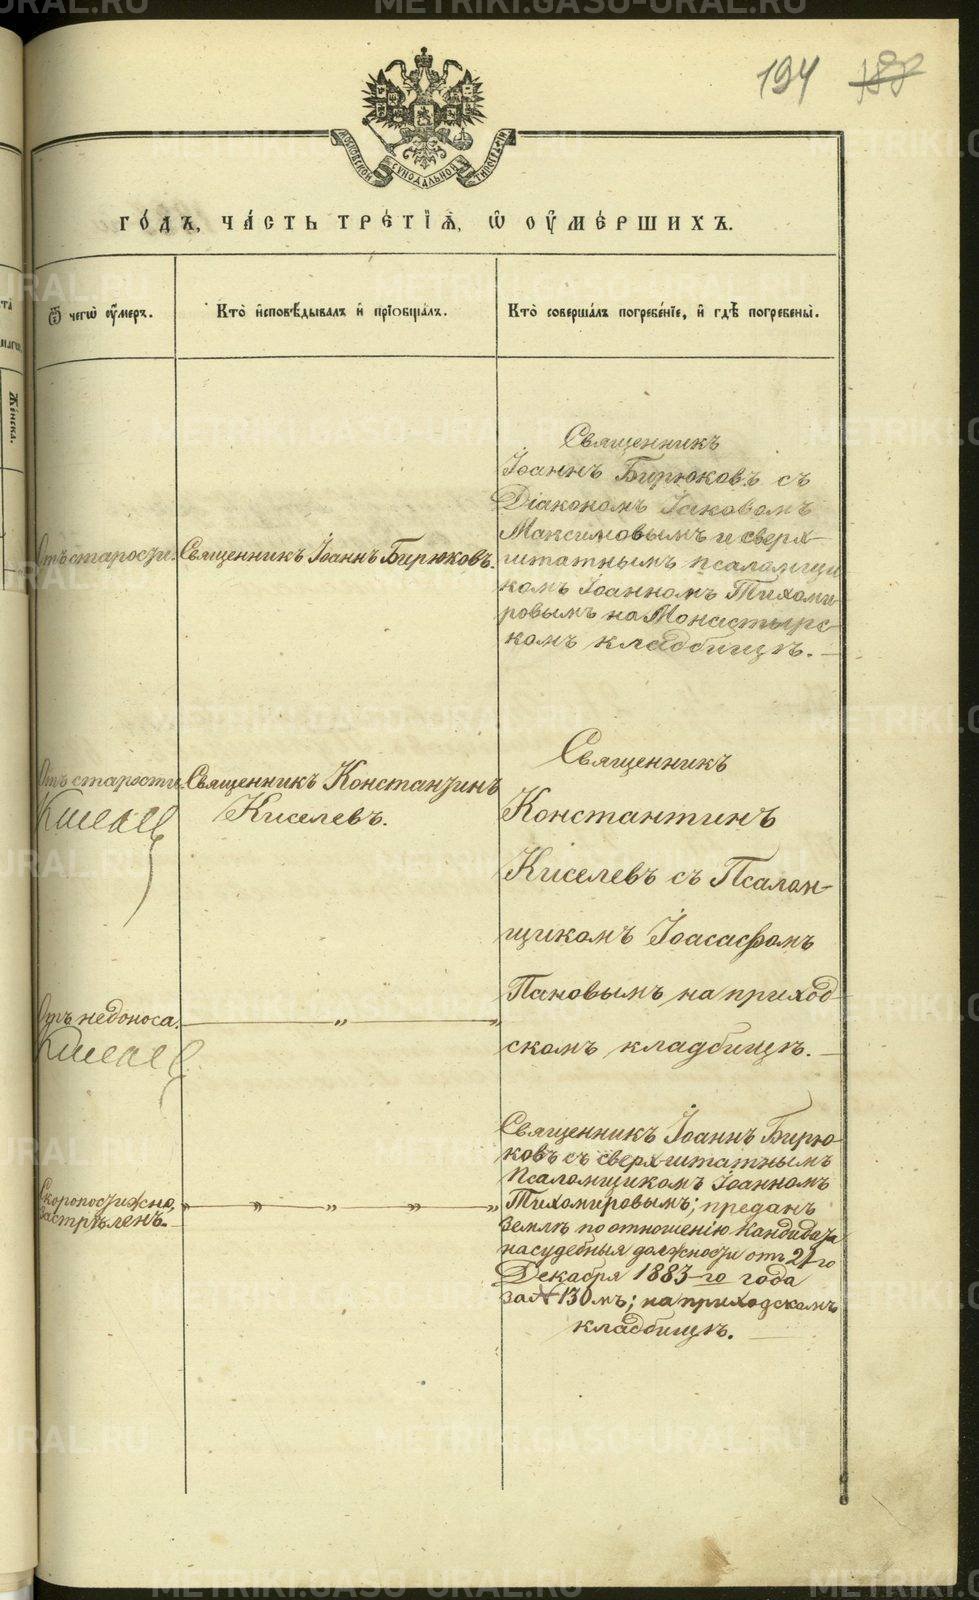 194 188
МОСКОВСКОЙ СѴНОДАЛЬНОЙ ТИПОГРАФІИ
ГО́ДЪ, ЧА́СТЬ ТРЕ́ТІѦ, Ѡ ОУ҆МЕ́РШИХЪ.
Ѿ чегѡ̀ ᲂу҆́меръ.
Кто̀ и҆сповѣ́дывалъ и҆ прїѡбща́лъ.
Кто̀ соверша́лъ погребе́нїе, и҆ гдѣ̀ погребены̀.
Же́нска.
Отъ старости.
Священникъ Іоаннъ Бирюковъ.
Священникъ
Іоаннъ Бирюковъ съ
Діакономъ Іаковомъ
Максимовымъ и сверх-
штатнымъ псаломщи
комъ Іоанномъ Тихоми-
ровымъ на Монастырс-
комъ кладбищѣ.
Отъ старости
Киселев
Священникъ Константинъ
Киселевъ.
Священникъ
Константинъ
Киселевъ съ Псалом-
щикомъ Іоасафомъ
Пановымъ на приход-
скомъ кладбищѣ.
Отъ недоноса.
Киселев
„ „
Скоропостижно,
застрѣленъ.
„ „ „ „ „
Священникъ Іоаннъ Бирю-
ковъ съ сверх-штатнымъ
Псаломщикомъ Іоанномъ
Тихомировымъ; преданъ
землѣ по отношенію Кандидата
на судебныя должности отъ 21-го
Декабря 1883-го года
за № 130мъ; на приходскомъ
кладбищѣ.
METRIKI.GASO-URAL.RU